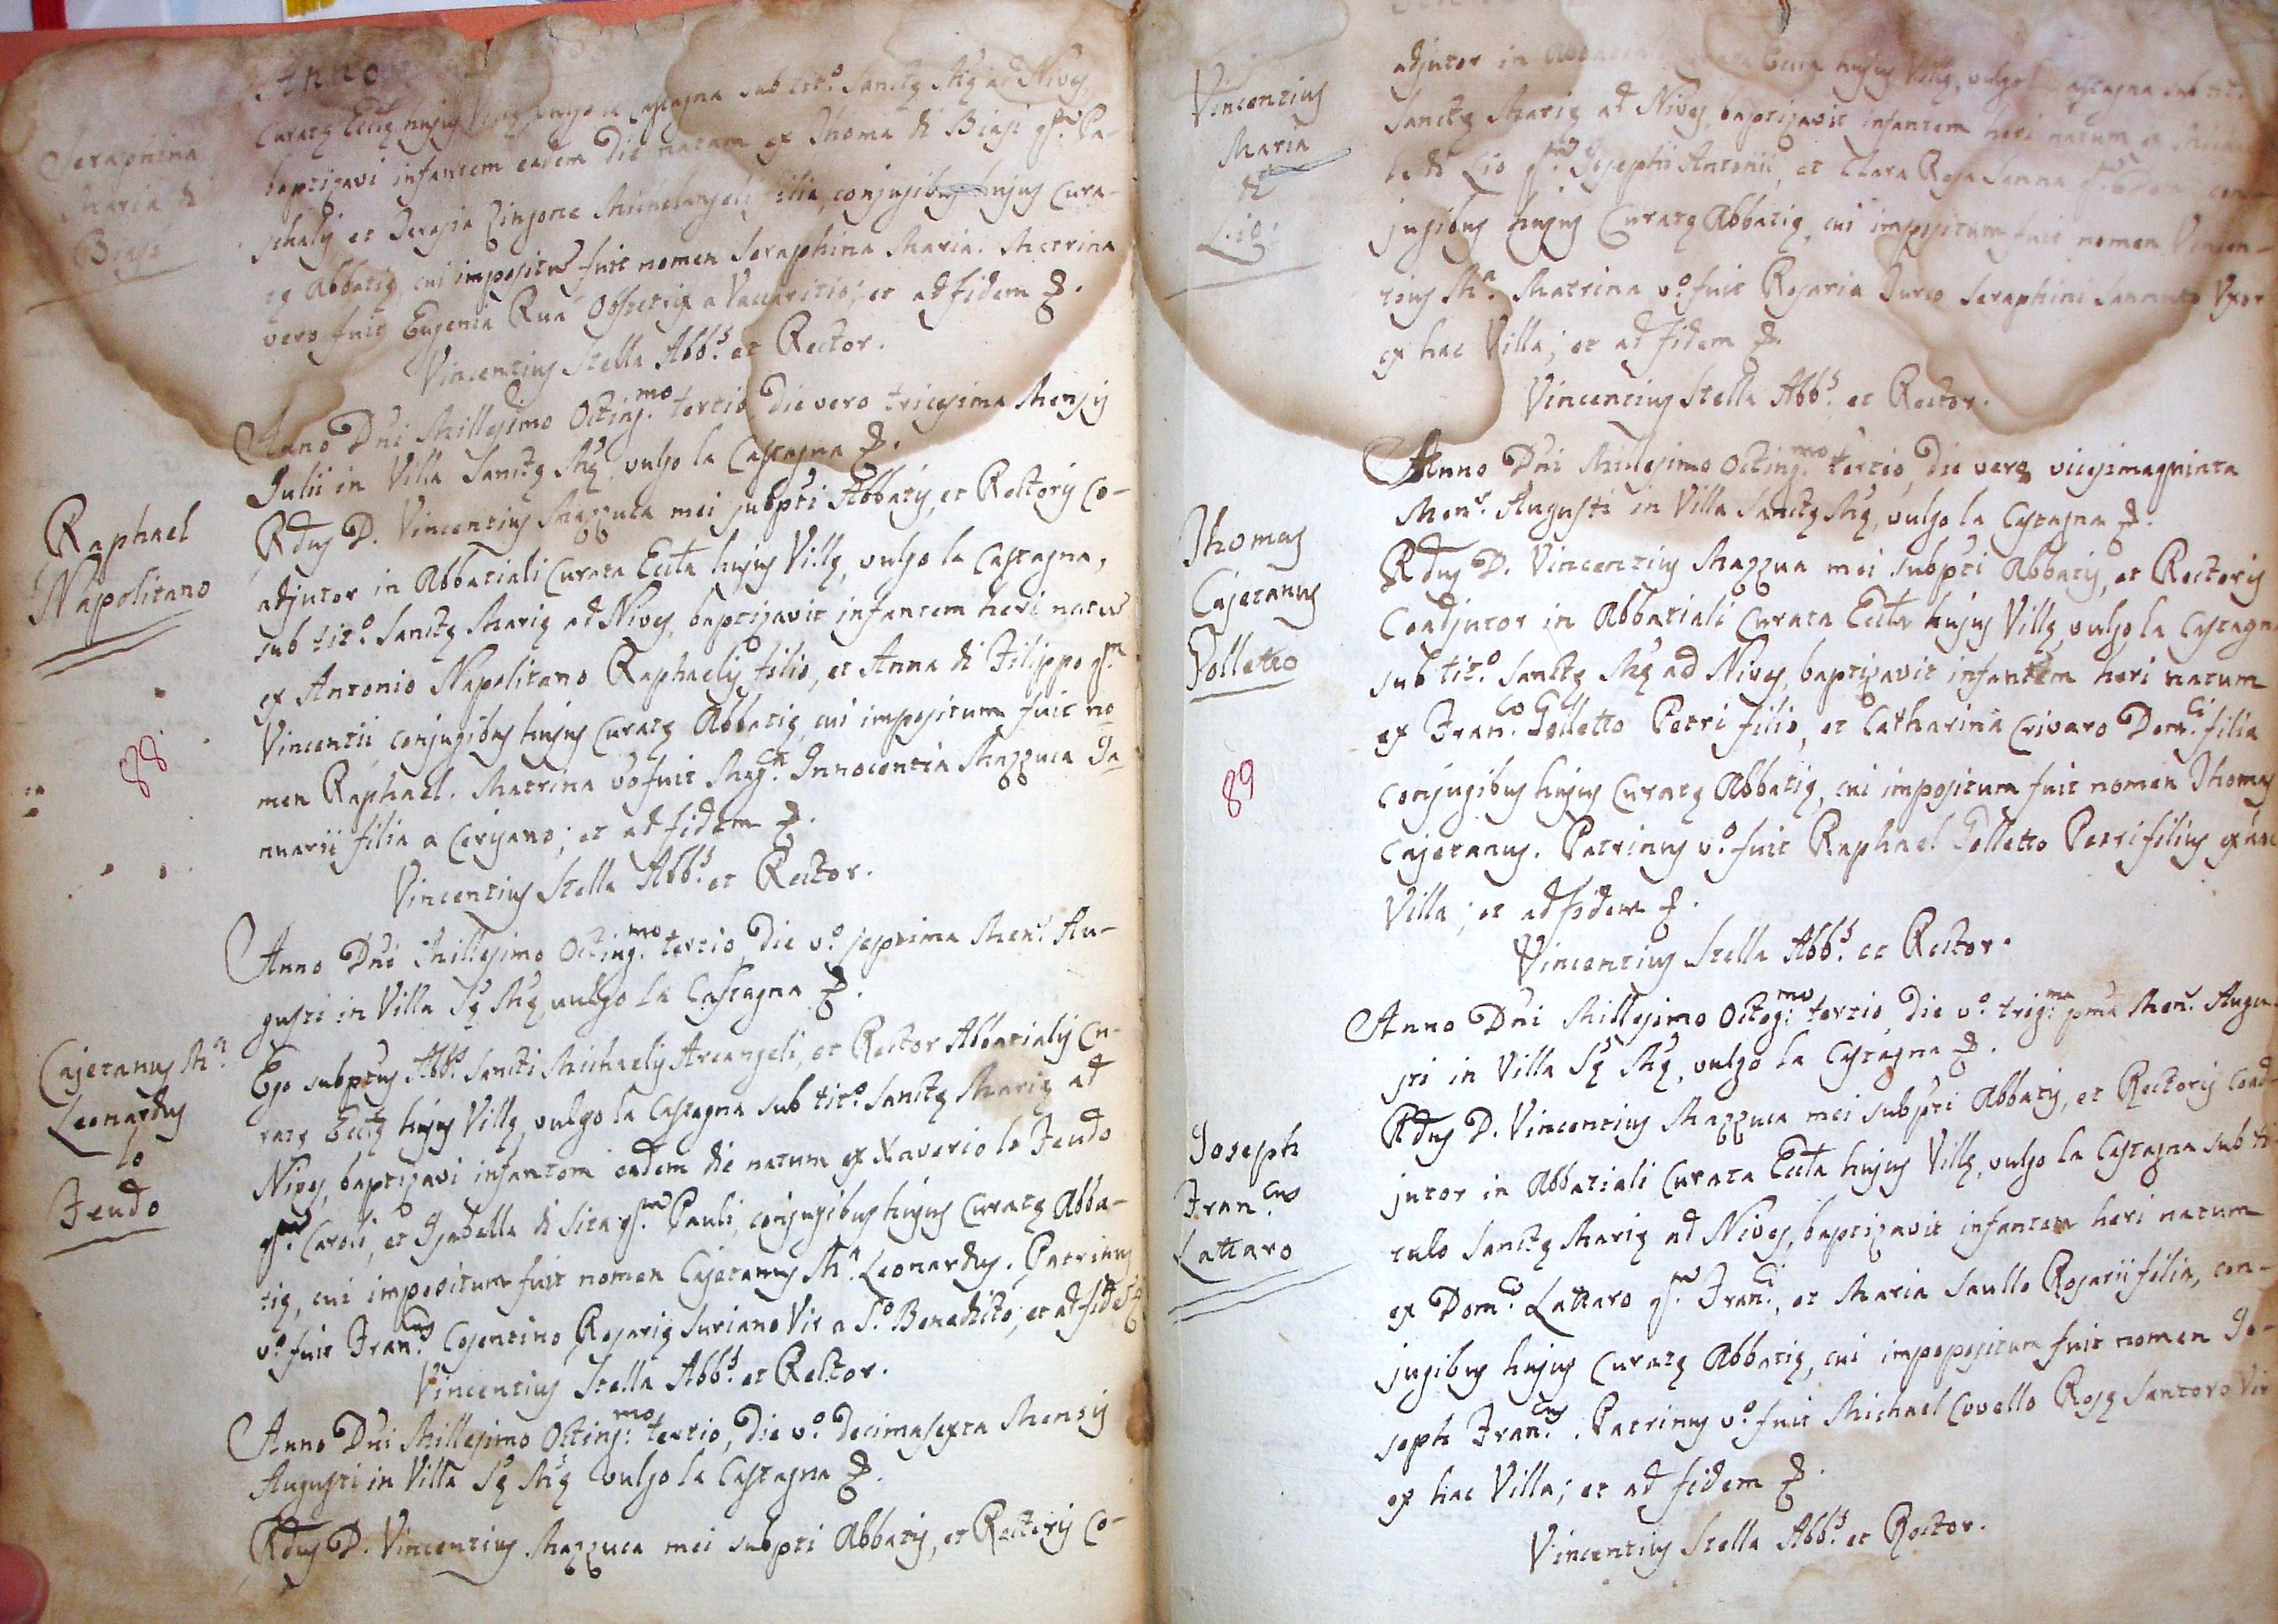 Anno
Curatę Eccłię hujus Villę, vulgo la Castagna sub tit.º Sanctę Mꝗ ad Nives
baptizavi infantem eadem die natam ex Thoma di Biasi qm. Pa-
schalis et Teresia Cinzone Michelangeli filia, conjugibus hujus Cura-
tę Abbatię, cui impositũ fuit nomen Seraphina Maria. Matrina
vero fuit Eugenia Rua Obstetrix a Vaccaritio; et ad fidem &.
Vincentius Stella Abb.s et Rector.
Seraphina
Maria di
Biasi
Anno Dñi Millesimo Octing.mo tertio, die vero tricesima Mensis
Julii in Villa Sanctę Mę, vulgo la Castagna &.
Rdus D. Vincentius Mazzuca mei subpti Abbatis, et Rectoris Co-
adjutor in Abbatiali Curata Eccła hujus Villę, vulgo la Castagna,
sub tit.º Sanctę Marię ad Nives, baptizavit infantem heri natũ
ex Antonio Napolitano Raphaelis filio, et Anna di Filippo qm.
Vincentii, conjugibus hujus Curatę Abbatię, cui impositum fuit no
men Raphael. Matrina vº fuit Mag.ca Innocentia Mazzuca Ja
nuarii filia a Cerisano; et ad fidem &.
Vincentius Stella Abb.s et Rector.
Raphael
Napolitano
88
Anno Dñi Millesimo Octing.mo tertio, die v.º septima Men.s Au-
gusti in Villa Sę Mę, vulgo la Castagna &.
Ego subptus Abb.s Sancti Michaelis Arcangeli, et Rector Abbatialis Cu-
ratę Eccłię hujus Villę, vulgo la Castagna sub tit.º Sanctę Marię ad
Nives, baptizavi infantem eadem die natum ex Xaverio lo Feudo
qm. Caroli, et Isabella di Sita qm. Pauli, conjugibus hujus Curatę Abba-
tię, cui impositum fuit nomen Cajetanus M.a Leonardus. Patrinus
v.º fuit Fran.cus Cosentino Rosarię Suriano Vir a S.º Benedicto; et ad fidẽ &
Vincentius Stella Abb.s et Rector.
Cajetanus M.a
Leonardus
lo
Feudo
Anno Dñi Millesimo Octing.mo tertio, die v.º Decimasexta Mensis
Augusti in Villa Sę Mę vulgo la Castagna &.
Rdus D. Vincentius Mazzuca mei subpti Abbatis, et Rectoris Co-
adjutor in Abbatiali Curata Eccła hujus Villę, vulgo la Castagna sub tit.
Sanctę Marię ad Nives, baptizavit infantem heri natum ex Micha
le di Lio qm. Josephi Antonii, et Clara Rosa Sanna con-
jugibus hujus Curatę Abbatię, cui impositum fuit nomen Vincen-
tius M.a Matrina v.º fuit Rosaria Turco Seraphini Sannuto Uxor
ex hac Villa; et ad fidem &.
Vincentius Stella Abb.s et Rector.
Vincentius
Maria
di
Lio
Anno Dñi Millesimo Octing.mo tertio, die vero vicesimaquinta
Men.s Augusti in Villa Sanctę Mę, vulgo la Castagna &.
Rdus D. Vincentius Mazzua mei subpti Abbatis, et Rectoris
Coadjutor in Abbatiali Curata Eccła hujus Villę, vulgo la Castagn
sub tit.º Sanctę Mę ad Nives, baptizavit infantem heri natum
ex Fran.co Golletto Petri filio, et Catharina Crivaro Dom.ci filia
conjugibus hujus Curatę Abbatię, cui impositum fuit nomen Thomas
Cajetanus. Patrinus v.º fuit Raphael Golletto Petri filius ex hac
Villa; et ad fidem &.
Vincentius Stella Abb.s et Rector.
Thomas
Cajetanus
Golletto
89
Anno Dñi Millesimo Octog.mo tertio, die v.º trig.ma pma Men.s Augu-
sti in Villa Sę Mę, vulgo la Castagna &.
Rdus D. Vincentius Mazzuca mei subpti Abbatis, et Rectoris Coad-
jutor in Abbatiali Curata Eccła hujus Villę, vulgo la Castagna sub ti-
tulo Sanctę Marię ad Nives, baptizavit infantem heri natum
ex Dom.co Lattaro qm. Fran.ci, et Maria Saullo Rosarii filia, con-
jugibus hujus Curatę Abbatię, cui impopositum fuit nomen Jo-
seph Fran.cus. Patrinus v.º fuit Michael Covello Rosę Santoro Vir
ex hac Villa; et ad fidem &.
Vincentius Stella Abb.s et Rector.
Joseph
Fran.cus
Lattaro